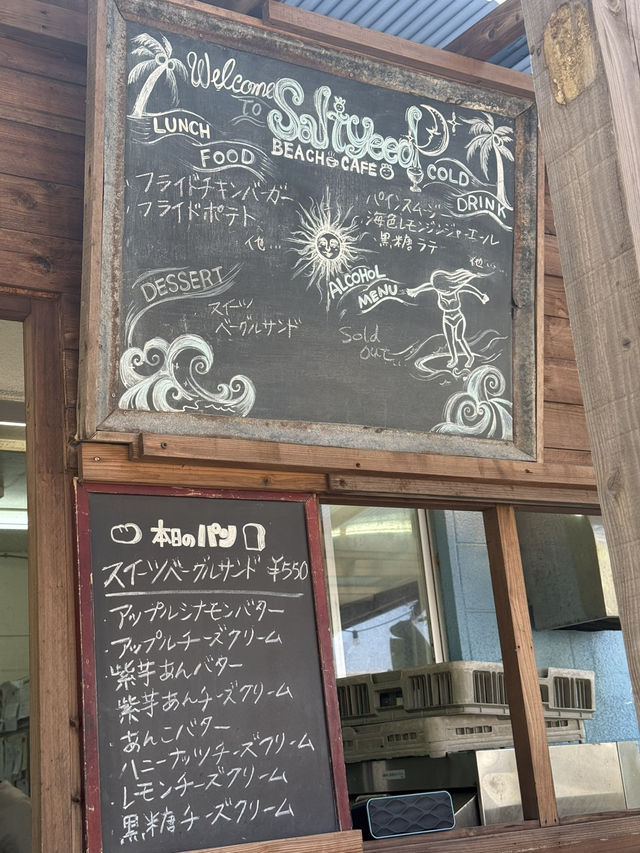 Welcome
TO
Saltyeed
BEACH CAFE
LUNCH
FOOD
・フライドチキンバーガー
・フライドポテト
他...
COLD
DRINK
・パインスムージー
・海色レモンジンジャーエール
・黒糖ラテ
他...
DESSERT
・スイーツ
ベーグルサンド
ALCOHOL
MENU
Sold
out...
本日のパン
スイーツベーグルサンド ¥550
・アップルシナモンバター
・アップルチーズクリーム
・紫芋あんバター
・紫芋あんチーズクリーム
・あんこバター
・ハニーナッツチーズクリーム
・レモンチーズクリーム
・黒糖チーズクリーム